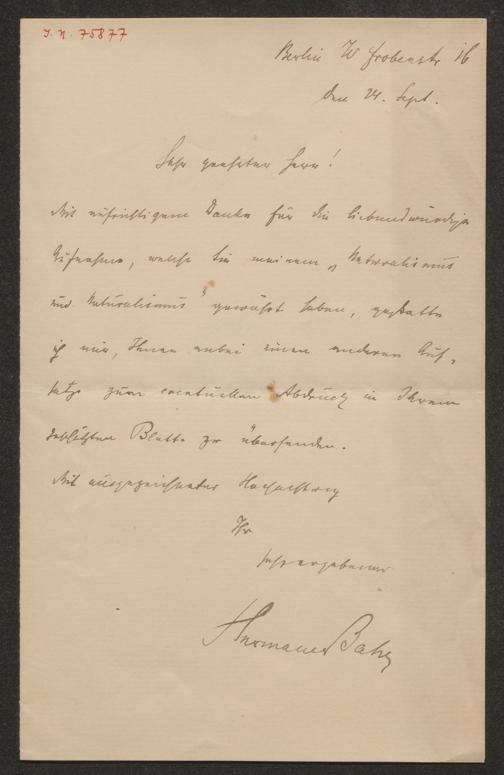 I. N. 75877
Berlin W Frobenstr 16
den 24. Sept.
Sehr geehrter Herr!
Mit aufrichtigem Danke für die liebenswürdige
Aufnahme, welche Sie meinem „Naturalismus
und Naturalismus" gewährt haben, gestatte
ich mir, Ihnen anbei einen anderen Auf-
satz zum eventuellen Abdruck in Ihrem
geschätzten Blatte zu übersenden.
Mit ausgezeichneter Hochachtung
Ihr
sehr ergebener
Hermann Bahr